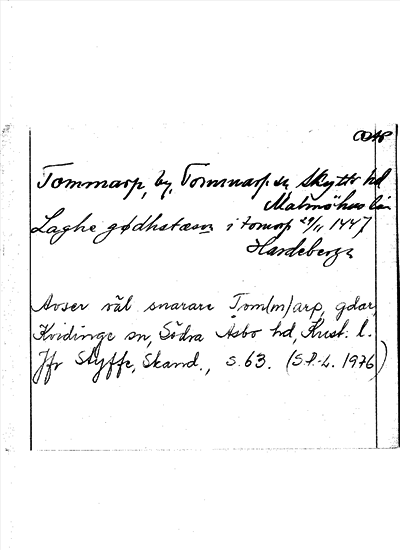 Tommarp, by, Tommarp sn, Skytts hd
Malmöhus län
Laghe gødhstæsn i tomorp 29/11 1447
Hardeberga
Avser väl snarare Tom(m)arp, gdar,
Kvidinge sn, Södra Åsbo hd, Krist. l.
Jfr Styffe, Skand., s. 63. (S.P.-L. 1976)